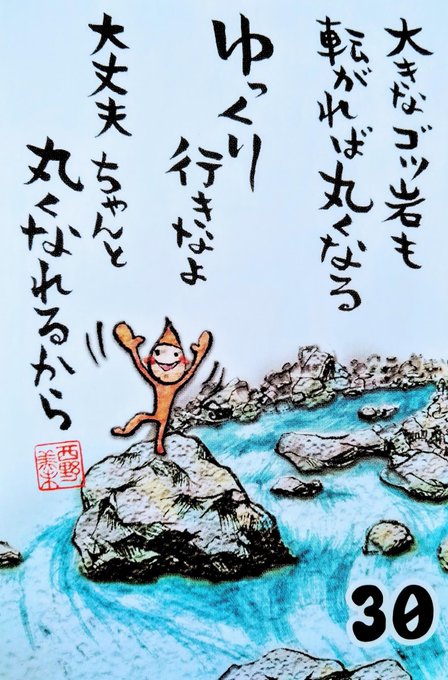 大きなゴツ岩も
転がれば丸くなる
ゆっくり
行きなよ
大丈夫 ちゃんと
丸くなれるから
西野
30